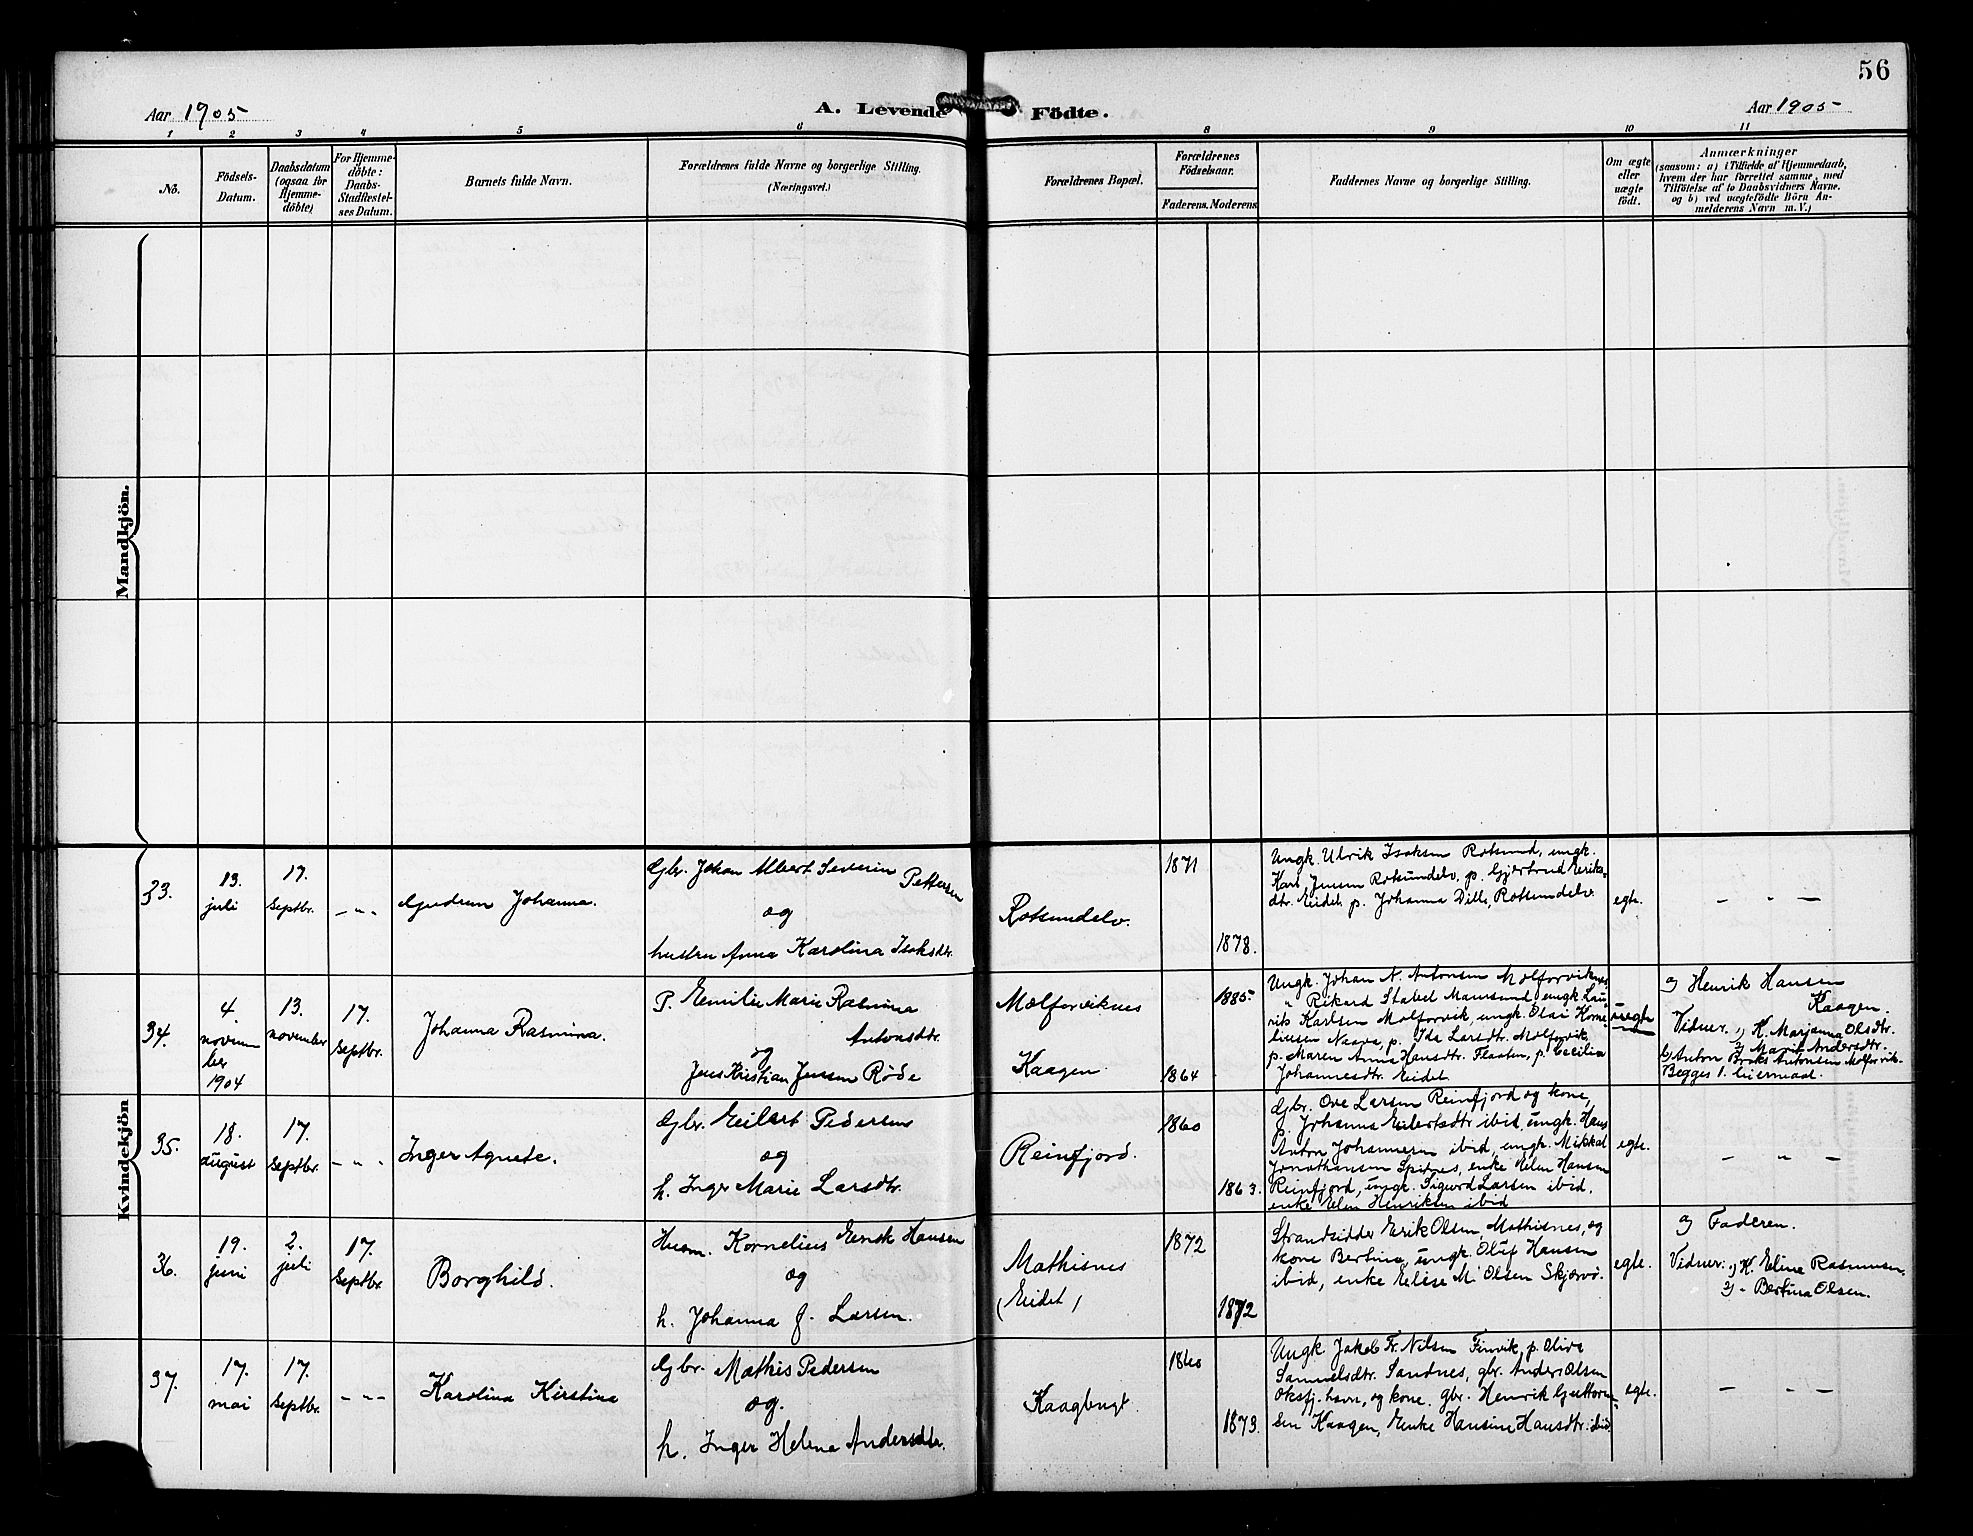 56
Aar 1905
A. Levende Födte.
Aar 1905
1 2 3 4 5 6 8 9 10 11
No.
Födsels-
Datum.
Daabsdatum
(ogsaa for
Hjemme-
döbte)
For Hjemme-
döbte:
Daabs-
Stadfæstel-
ses Datum.
Barnets fulde Navn.
Forældrenes fulde Navne og borgerlige Stilling.
(Næringsvei.)
Forældrenes Bopæl.
Forældrenes
Födselsaar.
Faderens. Moderens
Faddernes Navne og borgerlige Stilling.
Om ægte
eller
uægte
födt.
Anmærkninger
(saasom: a) i Tilfælde af Hjemmedaab,
hvem der har forrettet samme, med
Tilföielse af to Daabsvidners Navne.
og b) ved uægtefödte Börn An-
melderens Navn m. V.)
Mandkjön.
Kvindekjön
33.
13.
juli
17.
Septbr.
- " -
Gudrun Johanna.
Gbr. Johan Albert Severin Pettersen
og
hustru Anna Karolina Isaksdtr.
Rotsundelv.
1871
1878.
Ungk. Ulrik Isaksen Rotsund, ungk.
Karl Jensen Rotsundelv, p. Gjertrud Eriks-
dtr. Eidet p. Johanna Dille, Rotsundelv.
egte.
- " -
34.
4.
novem
ber
1904
13.
november
17.
Septbr.
Johanna Rasmina.
P. Emilie Marie Rasmina
Antonsdtr.
og
Jens Kristian Jensen Røde
Mælforviknes
Kaagen
1885
1864
Ungk. Johan N. Antonsen Molforviknes
" Rikard Stabel Maursund, ungk. Lau-
rits Karlsen Molforvik, ungk. Olai Korne-
liussen Neava, p. Ida Larsdtr. Molforvik,
p. Maren Anna Hansdtr. Flaaten, p. Cecilia
Johannesdtr. Eidet
uegte
a) Henrik Hansen
Kaagen.
Vidner. 1) K. Marjanna Olsdtr.
2) Marit Andersdtr.
b) Anton Broks Antonsen Molforvik.
Begges 1. leiermaal.
35.
18.
august
17.
Septbr.
- " -
Inger Agnete.
Gbr. Eilert Pedersen
og
h. Inger Marie Larsdtr.
Reinfjord.
1860
1863.
Gbr. Ove Larsen Reinfjord og kone,
p. Johanna Eilertsdtr ibid, ungk. Hans
Anton Johannesen ibid, ungk. Mikkal
Jonathansen Spitnes, enke Elen Hansen
Reinfjord, ungk. Sigurd Larsen ibid.
enke Elen Henriksen ibid
egte.
- " -
36.
19.
juni
2.
juli
17.
Septbr
Borghild.
Husm. Kornelius Enok Hansen
og
h. Johanna J. Larsen.
Mathisnes
(Eidet)
1872
1872
Strandsidder Erik Olsen, Mathisnes, og
kone Bertina, ungk. Oluf Hansen
ibid, enke Elise M. Olsen Skjervø.
egte.
a) Faderen.
Vidner: 1) K. Eline Rasmussen.
2) - Bertina Olsen.
37.
17.
mai
17.
Septbr.
- " -
Karolina Kirstina
Gbr. Mathis Pedersen
og.
h. Inger Helena Andersdtr.
Kaagbugt.
1860
1873.
Ungk Jakob Fr. Nilsen Finvik, p. Oliva
Samuelsdtr. Sandnes, gbr. Anders Olsen
Oksfj. havn, og kone. gbr. Henrik Guttorm-
sen Kaagen, Enke Hansine Hansdtr. ibid
egte.
- " -